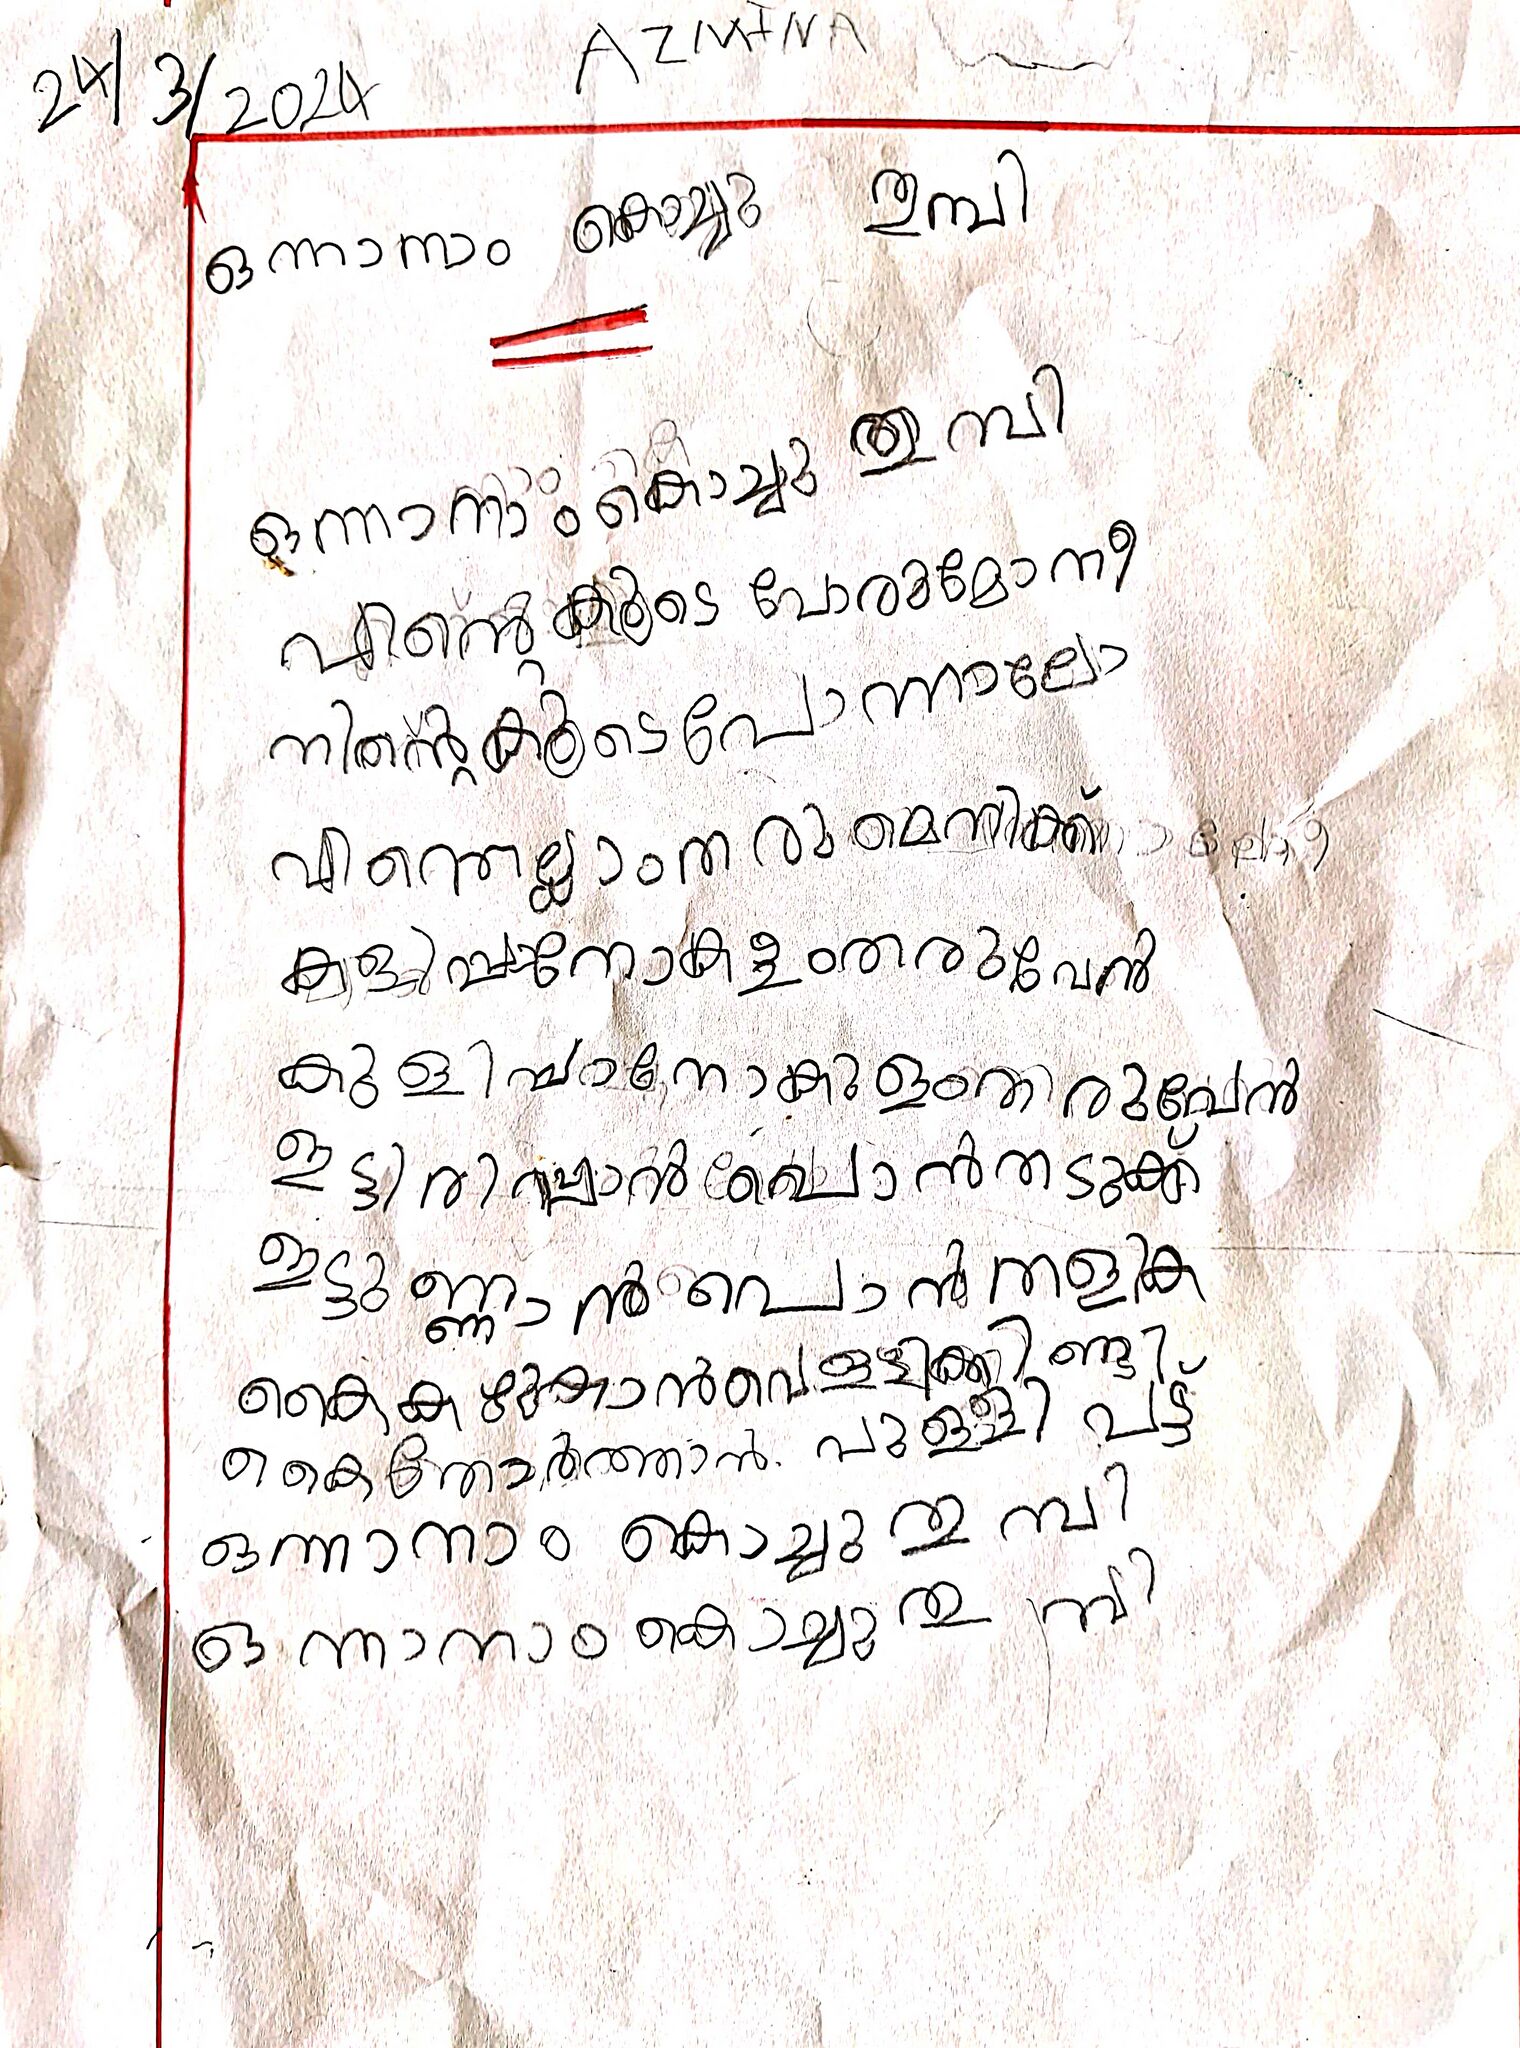 AZMINA
24/3/2024
ഒന്നാനാം കൊച്ചു തുമ്പി
ഒന്നാനാം കൊച്ചു തുമ്പി
എന്റെകൂടെ പോരുമോനീ
നിന്റെകൂടെപോന്നാലോ
എന്തെല്ലാംതരുമെനിക്ക്
കളിപ്പാനോകളംതരുവേൻ
കുളിപ്പാനോകുളംതരുവേൻ
ഇട്ടിരിപ്പാൻ പൊൻതടുക്ക്
ഇട്ടുണ്ണാൻ പൊൻതളിക
കൈകഴുകാൻവെള്ളിക്കിണ്ടി
കൈതോർത്താൻ. പുള്ളി പട്ട്
ഒന്നാനാം കൊച്ചുതുമ്പി
ഒന്നാനാം കൊച്ചുതുമ്പി